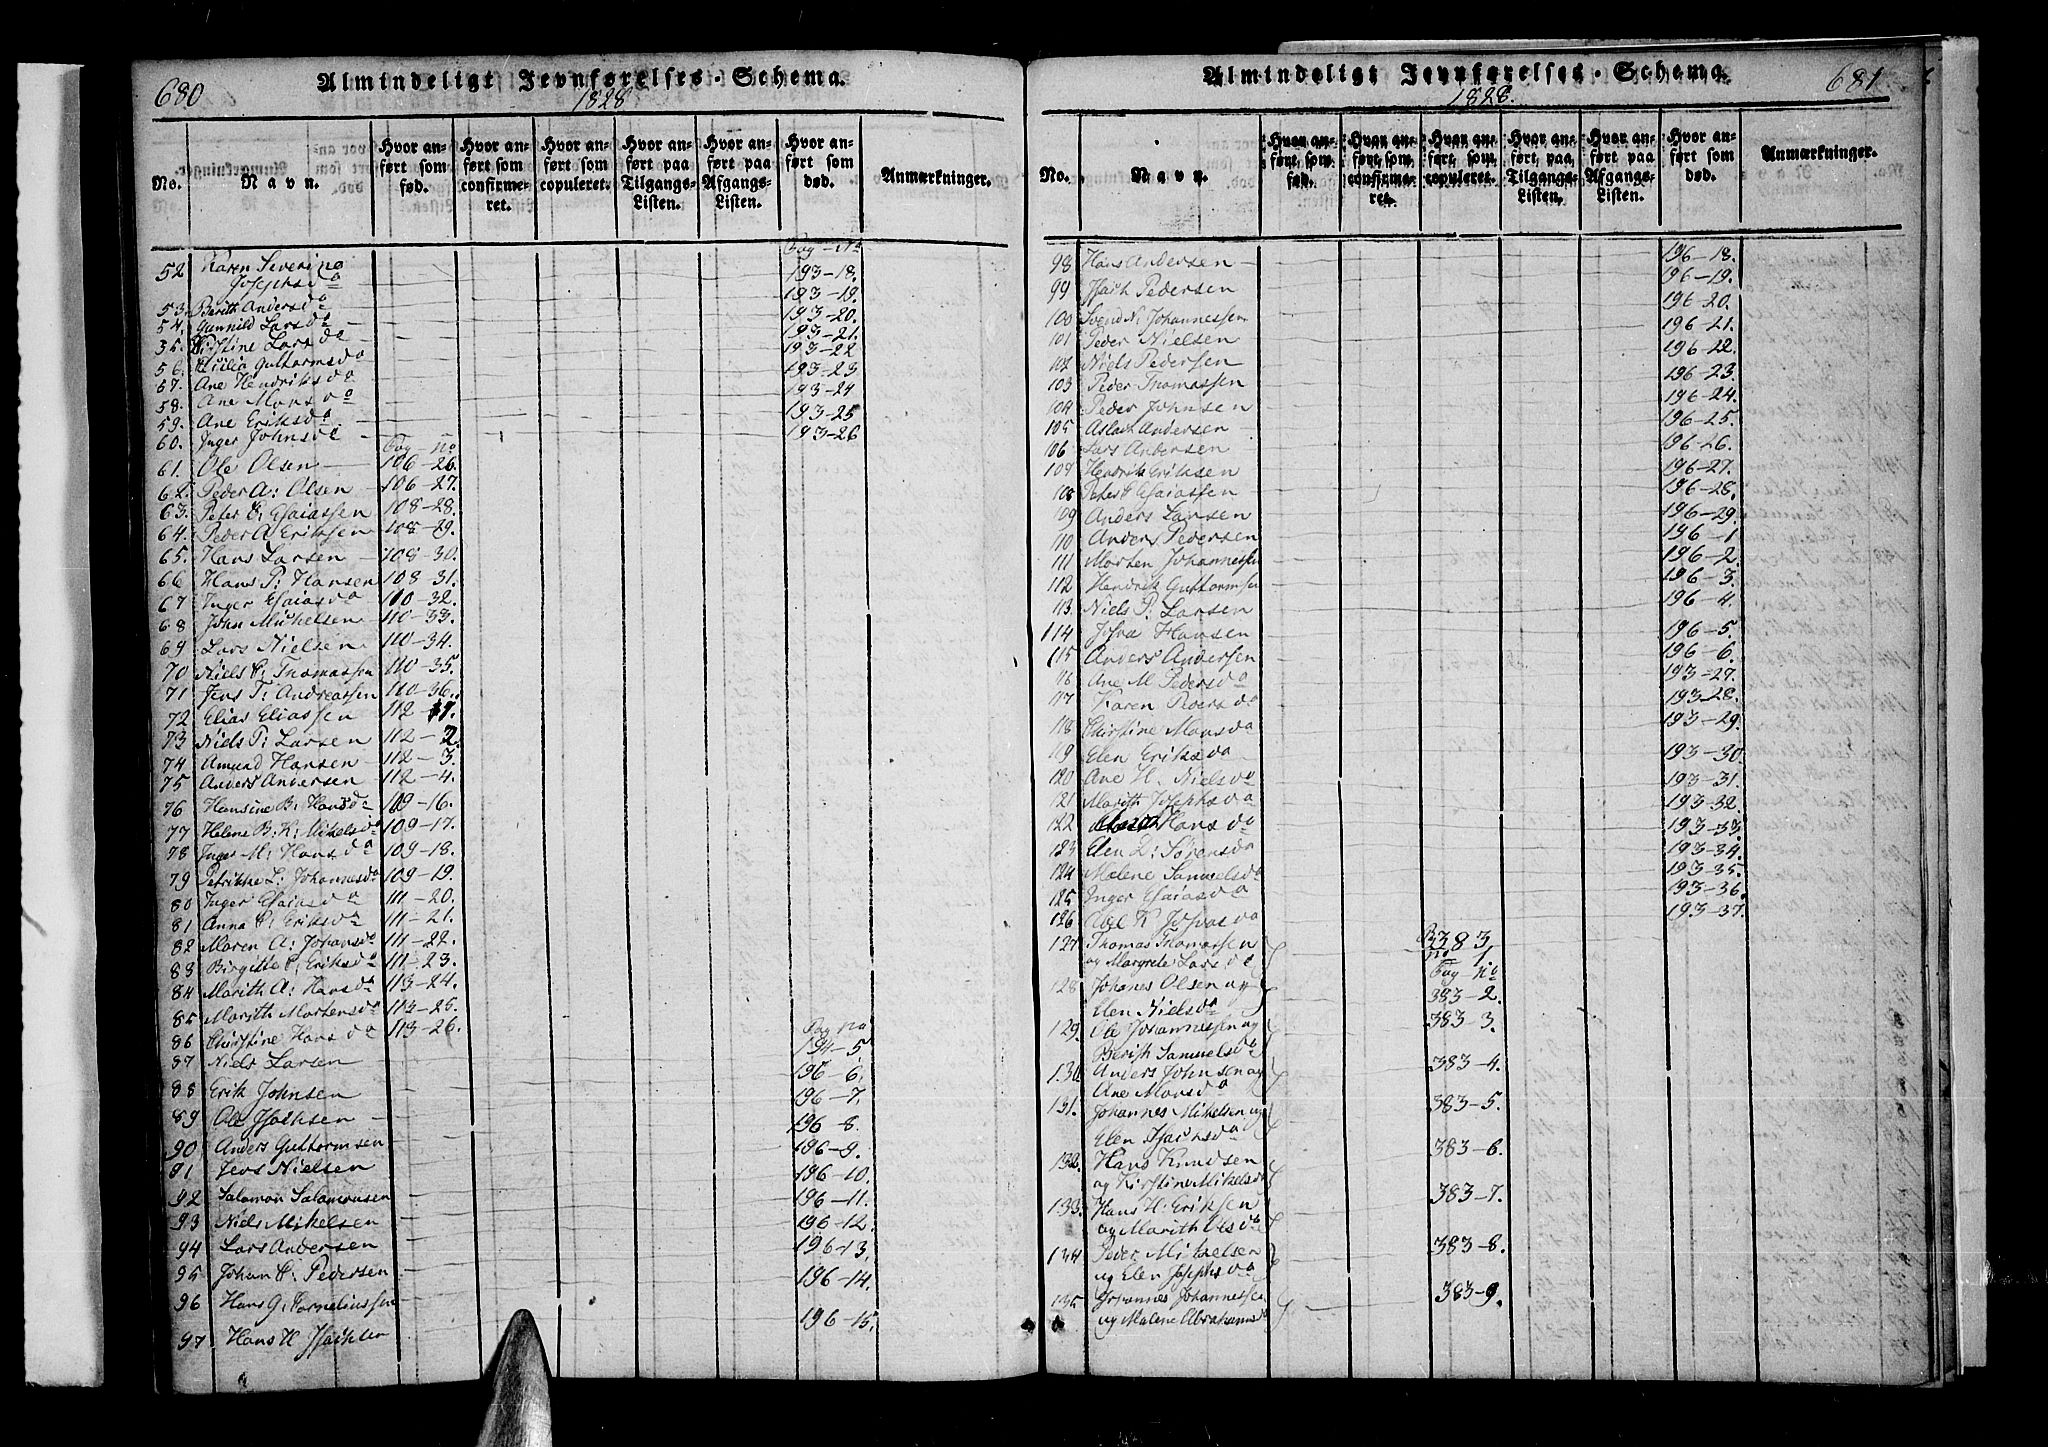 680
Almindeligt Jevnførelses-Schema.
1828
No.
Navn.
Hvor anført som fød.
Hvor anført som confirmeret.
Hvor anført som copuleret.
Hvor anført paa Tilgangs-Listen.
Hvor anført paa Afgangs-Listen.
Hvor anført som død.
Anmærkninger.
Pag No
52 Karen Severina
Josephsda 193-18.
53. Berith Andersda 193-19.
54. Gunnild Larsda 193-20.
55. Kirstine Larsda 193-21.
56. Guttormsda 193-22
57. Ane Hendriksda 193-23
58. Ane Monsda 193-24
59. Ane Eriksda 193-25
60. Inger Johnsda 193-26
Pag No
61. Ole Olsen 106-26.
62. Peder A: Olsen 106-27.
63. Peter E: Esaiassen 108-28.
64. Peder A Erikssen 108-29.
65. Hans Larsen 108-30.
66 Hans P: Hansen 108-31.
67 Inger Esaiasda 110-32.
68 John Mikelsen 110-33.
69 Lars Nielsen 110-34.
70 Niels C: Thomassen 110-35.
71 Jens T: Andreassen 110-36.
72 Elias Eliassen 112-1.
73 Niels P: Larsen 112-2.
74 Amund Hansen 112-3.
75 Anders Andersen 112-4.
76 Hansine B: Hansda 109-16.
77 Helene B: K: Mikelsda 109-17.
78 Inger M: Hansda 109-18.
79 Petrikke L: Johannesda 109-19.
80 Inger Esaiasda 111-20.
81 Anna C: Eriksda 111-21.
82 Maren A: Johansda 111-22.
83 Birgitte C: Eriksda 111-23.
84 Marith A: Hansda 113-24.
85 Marith Mortensda 113-25.
86 Christine Hansda 113-26.
Pag No
87 Niels Larsen 194-5
88 Erik Johnsen 196-6.
89 Ole Isachsen 196-7.
90 Anders Guttormsen 196-8.
91 Jens Nielsen 196-9.
92 Salamon Salamonsen 196-10.
93 Niels Mikelsen 196-11.
94 Lars Andersen 196-12.
95 Johan C: Pedersen 196-13.
96 Hans G: Corneliussen 196-14.
97 Hans H Isachsen 196-15.
681
Almindeligt Jevnførelses-Schema.
1828.
No.
Navn.
Hvor anført, som fød.
Hvor anført, som confirmeret.
Hvor anført, som copuleret.
Hvor anført, paa Tilgangs-Listen.
Hvor anført paa Afgangs-Listen.
Hvor anført som død.
Anmærkninger.
98 Hans Andersen 196-18.
99 Isach Pedersen 196-19.
100 Svend N: Johannessen 196-20.
101 Peder Nielsen 196-21.
102 Niels Pedersen 196-22.
103 Peder Thomassen 196-23.
104 Peder Johnsen 196-24.
105 Aslak Andersen 196-25.
106 Lars Andersen 196-26.
107 Hendrik Eriksen 196-27.
108 Peter E Esaiassen 196-28.
109 Anders Larsen 196-29.
110 Anders Pedersen 196-1
111 Morten Johannessen 196-2.
112 Hendrik Guttormsen 196-3.
113 Niels P: Larsen 196-4.
114 Josva Hansen 196-5.
115 Anders Andersen 196-6.
116 Ane M Pedersda 193-27.
117 Karen Pedersda 193-28.
118 Christine Monsda 193-29.
119 Elen Eriksda 193-30.
120 Ane H. Nielsda 193-31.
121 Marith Josephsda 193-32.
122 Hansda 193-33.
123 Elen L: Sørensda 193-34.
124 Malene Samuelsda 193-35.
125 Inger Esaiasda 193-36.
126 Abel K Josvasda 193-37.
127 Thomas Thomassen 383
og Margrete Larsda No 1
Pag No
128 Johanes Olsen og 383-2.
Elen Nielsda
129. Ole Johannessen og 383-3.
Berith Samuelsda
130 Anders Johnsen og 383-4.
Ane Monsda
131. Johannes Mikelsen og 383-5.
Elen Isachsda
132. Hans Knudsen 383-6.
og Kirstine Mikelsda
133. Hans H: Eriksen 383-7.
og Marith Olsda
134 Peder Mikkelsen 383-8.
og Elen Josephsda
135 Johannes Johannessen 383-9.
og Malene Abrahamsda